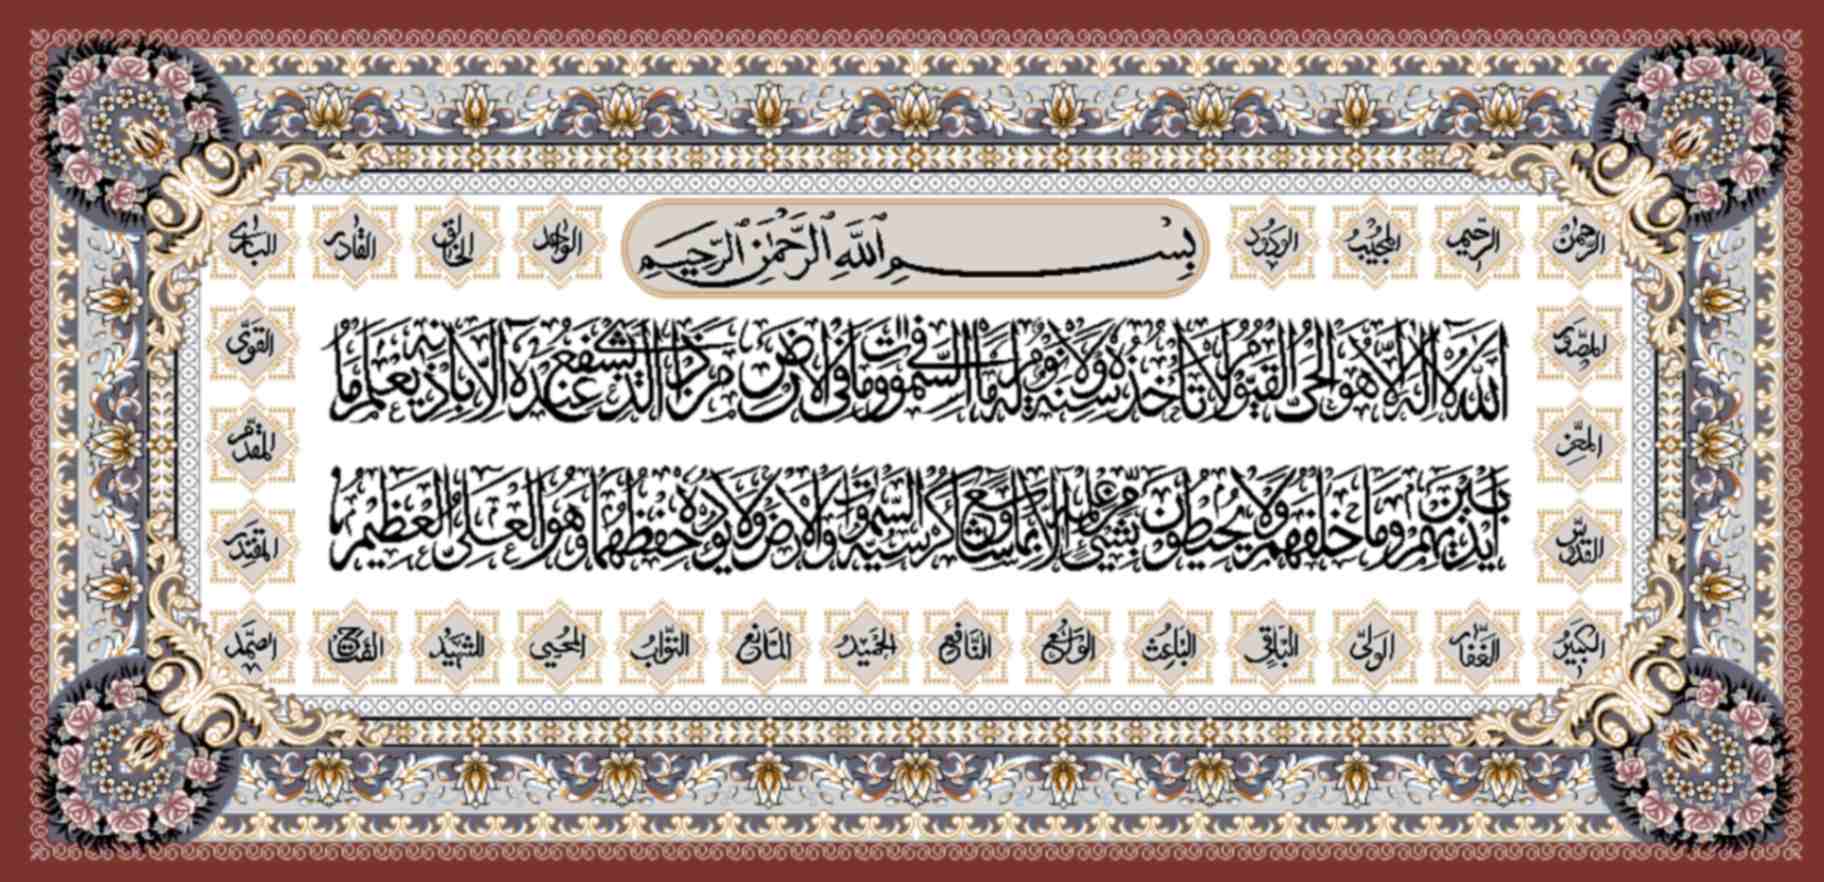 الرحمن الرحيم المجيب الودود
بسم الله الرحمن الرحيم
الواجد الخالق القادر البارئ
المصور القوي
الله لا إله إلا هو الحي القيوم لا تأخذه سنة ولا نوم له ما في السموت وما في الأرض من ذا الذي يشفع عنده إلا بإذنه يعلم ما
المعز المقدم
بين أيديهم وما خلفهم ولا يحيطون بشيء من علمه إلا بما شاء وسع كرسيه السموت والأرض ولا يؤده حفظهما وهو العلي العظيم
القدوس المقتدر
الكبير الغفار الولي الباقي الباعث الواسع النافع الحميد المانع التواب المحيي الشهيد الفتاح الصمد